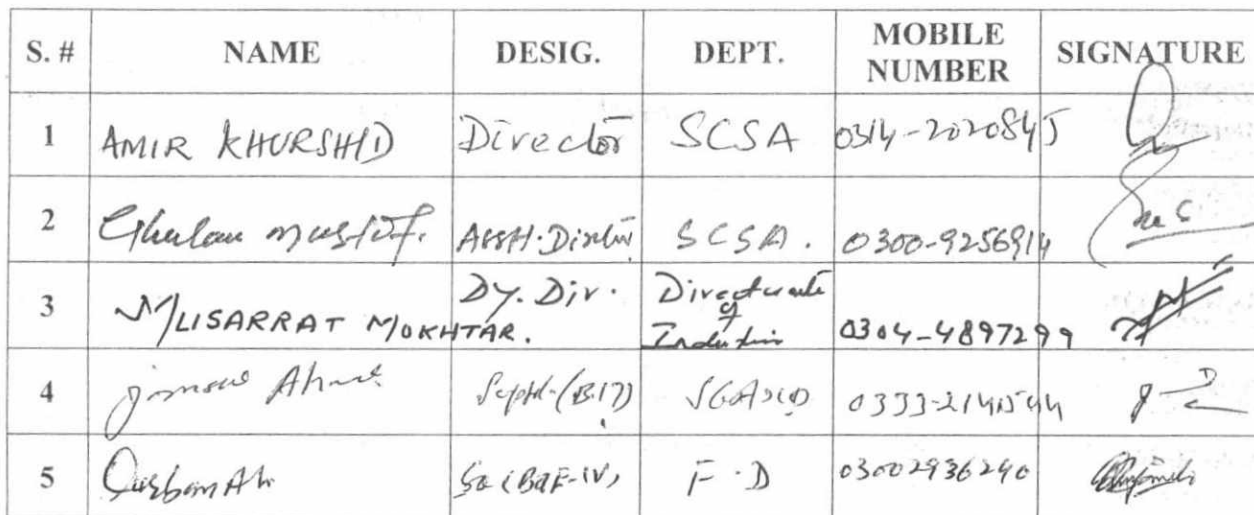 S. # NAME DESIG. DEPT. MOBILE NUMBER SIGNATURE
1 AMIR KHURSHID Director SCSA 0314-2020845
2 Ghulam Mustafa Asstt. Director SCSA. 0300-9256914
3 MUSARRAT MOKHTAR. Dy. Dir. Directorate of Industries 0304-4897299
4 Ahmed Supdt. (B.17) SGA&CD
5 Qurban Ali SO (B&E-IV) F.D 03002936240